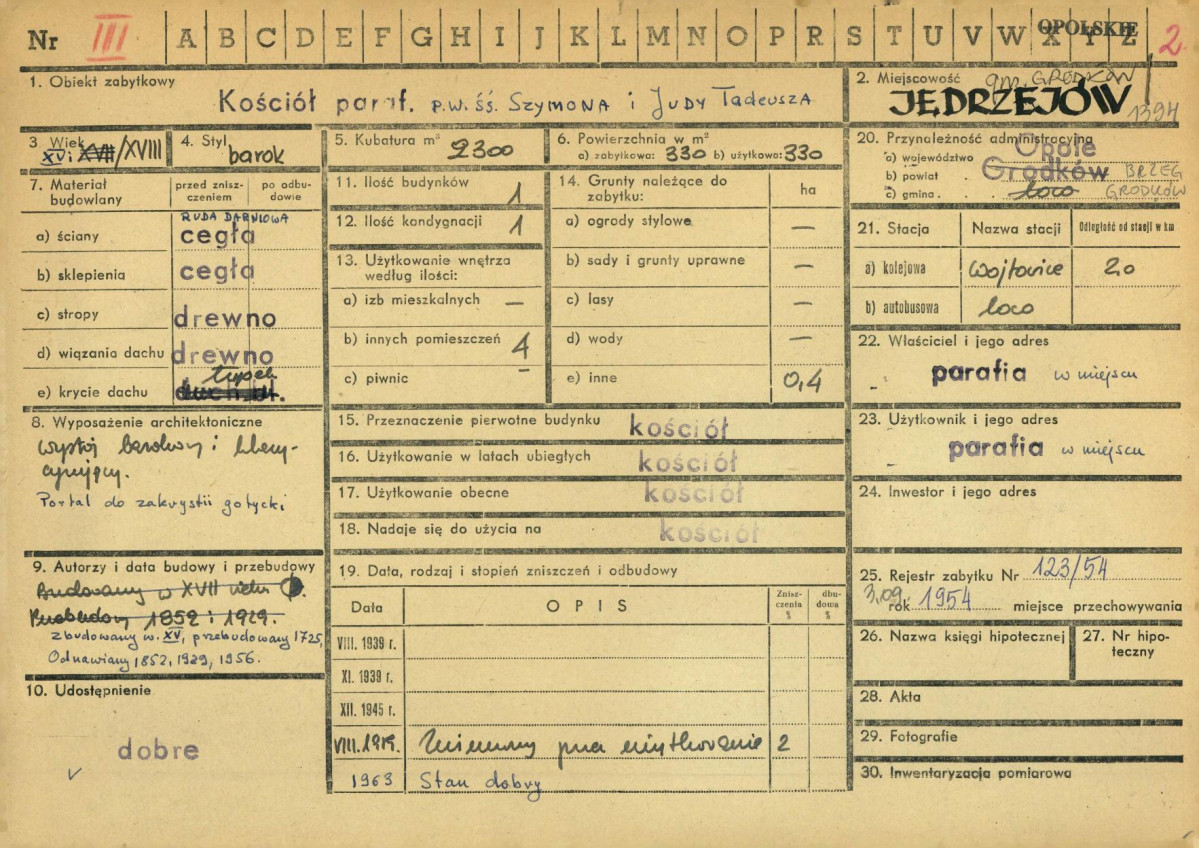 Nr III A B C D E F G H I J K L M N O P R S T U V W X Y Z OPOLSKIE 2
1. Obiekt zabytkowy
Kościół paraf. p.w. śś. Szymona i Judy Tadeusza
2. Miejscowość gm. GRODKÓW
JĘDRZEJÓW 1394
3 Wiek
XV i XVII/XVIII
4. Styl
barok
5. Kubatura m³ 2300
6. Powierzchnia w m²
a) zabytkowa: 330 b) użytkowa: 330
7. Materiał budowlany
przed zniszczeniem
po odbudowie
a) ściany RUDA DARNIOWA cegła
b) sklepienia cegła
c) stropy drewno
d) wiązania dachu drewno
e) krycie dachu
8. Wyposażenie architektoniczne
wystój barokowy i
Portal do zakrystii gotycki
9. Autorzy i data budowy i przebudowy
Budowany w XVII wieku
Przebudowy 1852 i 1929.
Zbudowany w. XV, przebudowany 1725,
Odnawiany 1852, 1929, 1956.
10. Udostępnienie
dobre
11. Ilość budynków 1
12. Ilość kondygnacji 1
13. Użytkowanie wnętrza
według ilości:
a) izb mieszkalnych —
b) innych pomieszczeń 4
c) piwnic —
14. Grunty należące do
zabytku:
ha
a) ogrody stylowe —
b) sady i grunty uprawne —
c) lasy —
d) wody —
e) inne 0,4
15. Przeznaczenie pierwotne budynku kościół
16. Użytkowanie w latach ubiegłych kościół
17. Użytkowanie obecne kościół
18. Nadaje się do użycia na kościół
19. Data, rodzaj i stopień zniszczeń i odbudowy
Data OPIS Zniszczenia % dbudowa %
VIII. 1939 r.
XI. 1939 r.
XII. 1945 r.
VIII. 1959. 2
1963 Stan dobry
20. Przynależność administracyjna
a) województwo Opole
b) powiat Grodków BRZEG
c) gmina loco GRODKÓW
21. Stacja Nazwa stacji Odległość od stacji w km
a) kolejowa Wojtowice 2,0
b) autobusowa loco
22. Właściciel i jego adres
parafia w miejscu
23. Użytkownik i jego adres
parafia w miejscu
24. Inwestor i jego adres
25. Rejestr zabytku Nr 123/54
3.09. rok 1954 miejsce przechowywania
26. Nazwa księgi hipotecznej
27. Nr hipoteczny
28. Akta
29. Fotografie
30. Inwentaryzacja pomiarowa